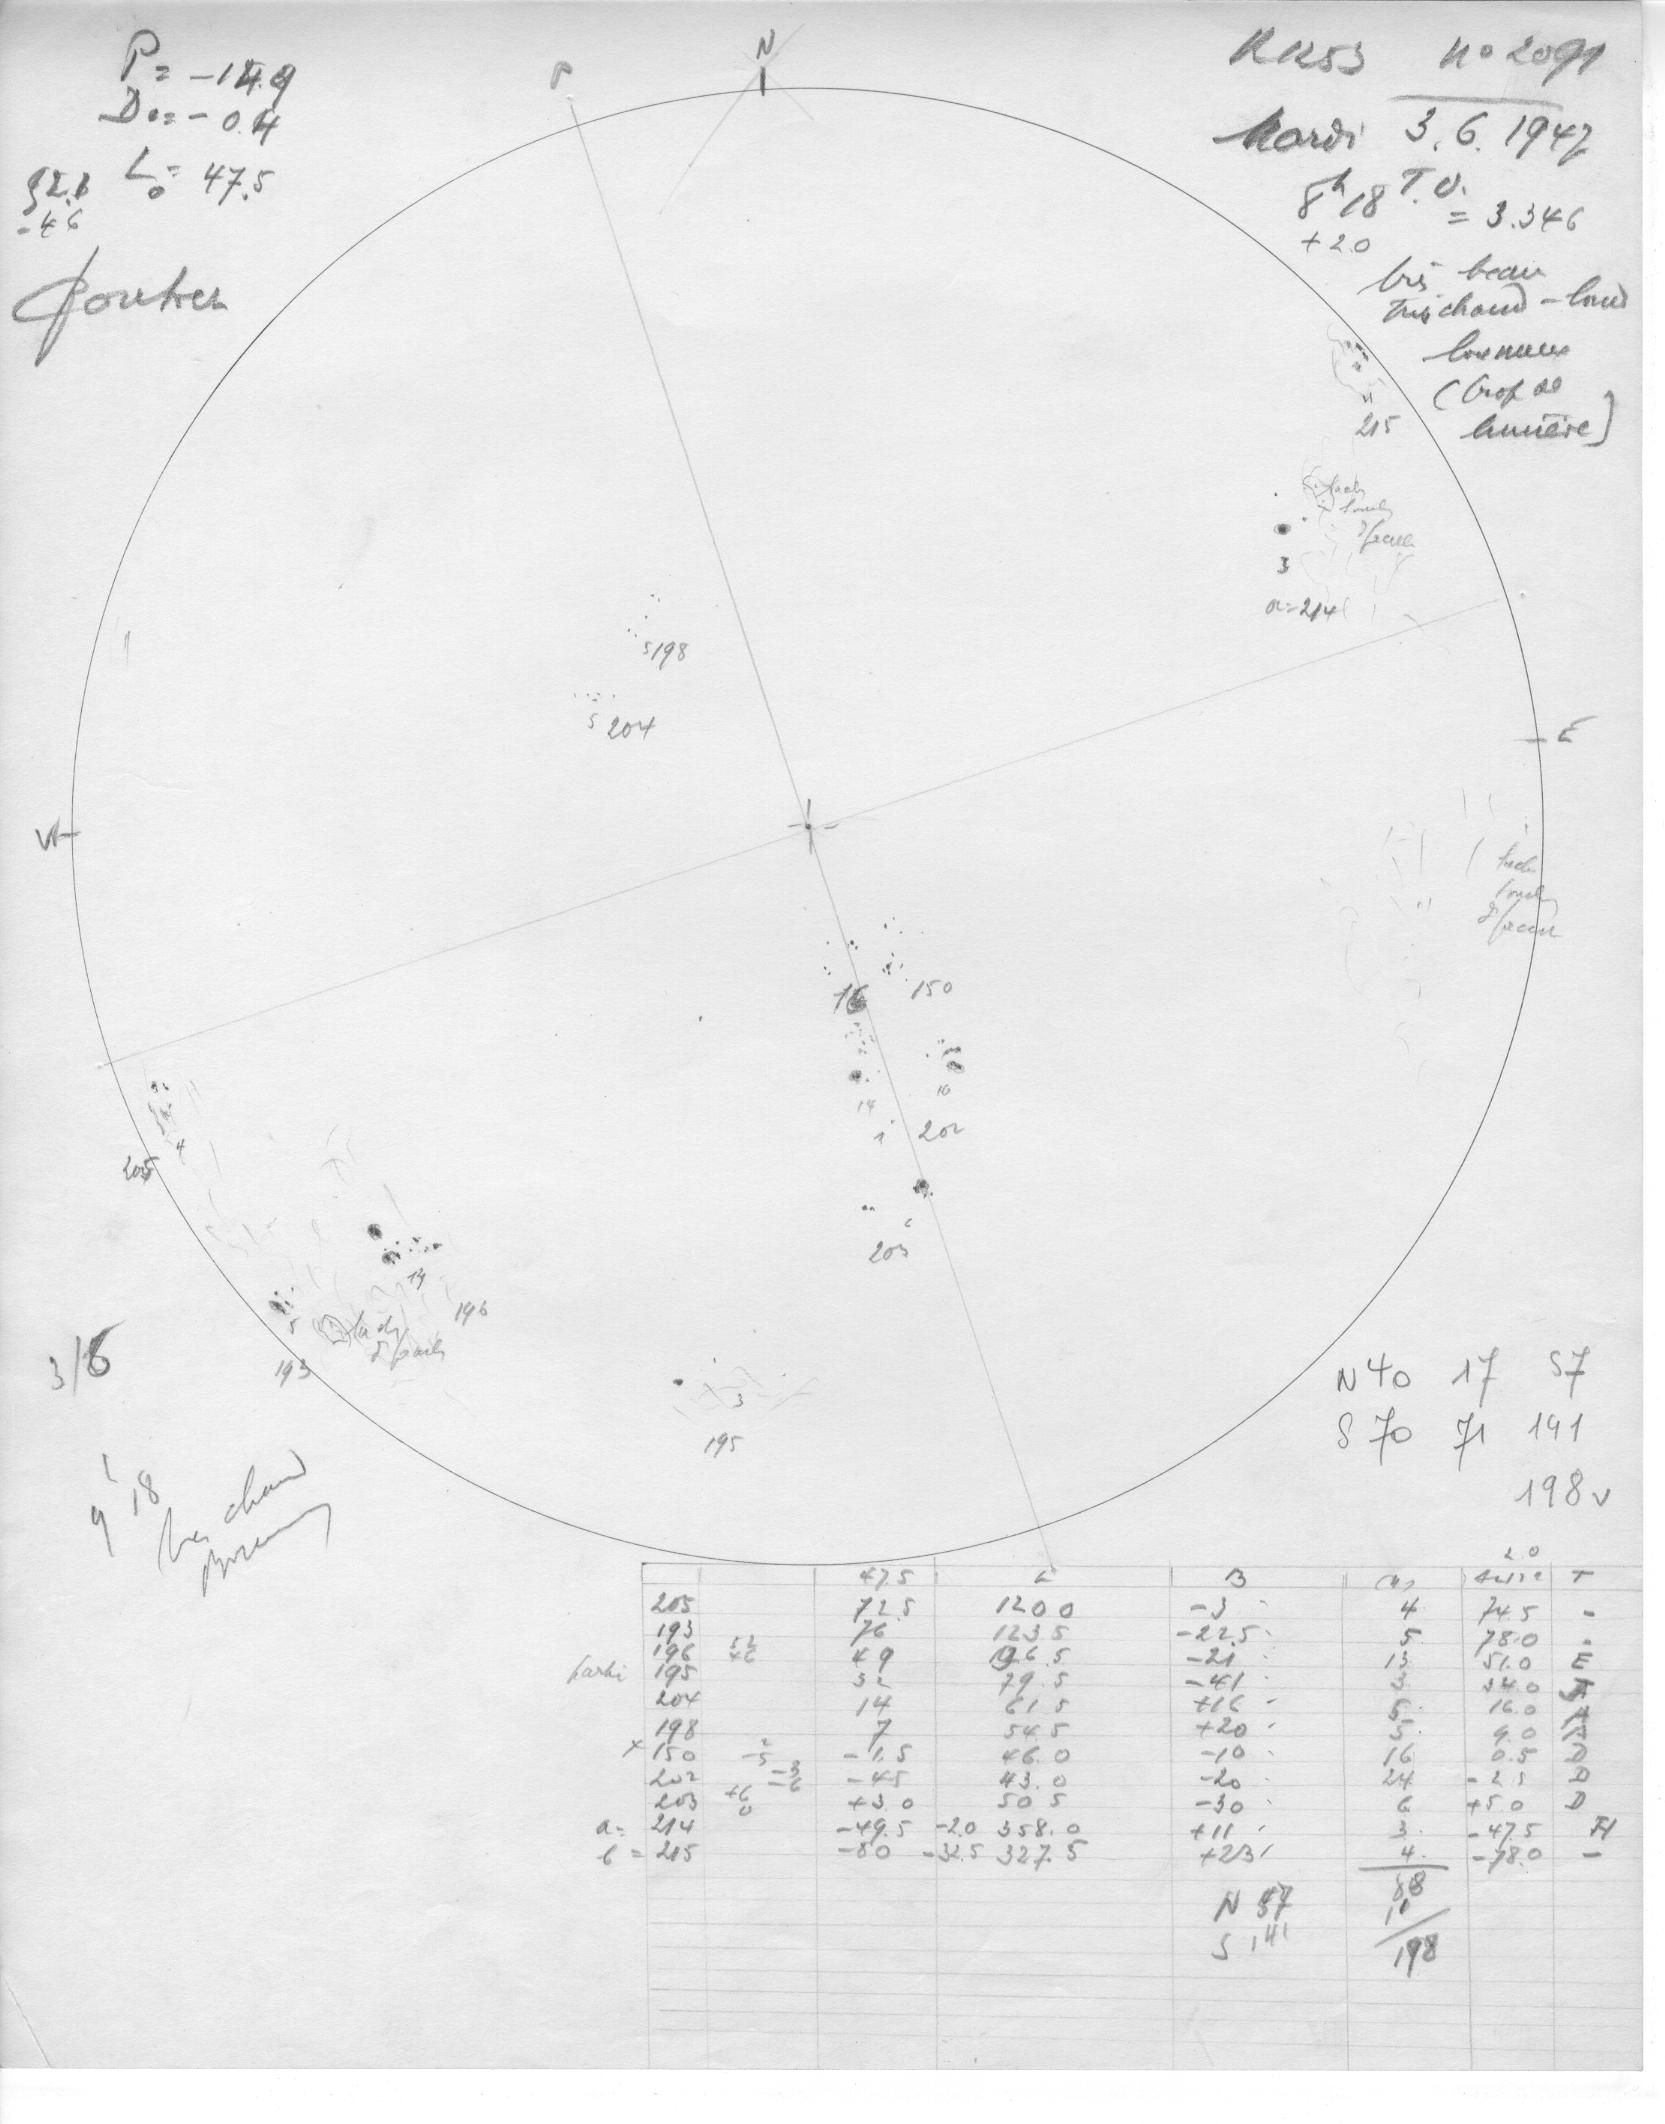 P = -14.9
D₀ = -0.4
L₀ = 47.5
-46
P
N
no 2091
Mardi 3.6.1947
8h18 T.U. = 3.346
+2.0
très beau
très chaud -
(trop de
lumière)
215
3
a=214
5 198
5 204
E
W
16 150
14
10
1
202
6
203
4
205
13
196
5
193
3
195
3/6
9 18
très chaud
N 40 17 57
S 70 71 141
198 v
2.0
47.5 L B T
205 72.5 120 0 -3 4 74.5 -
193 76 123 5 -22.5 5 78.0 -
196 49 96.5 -21 13 51.0 E
195 32 79.5 -41 3 34.0
204 14 61 5 +16 5 16.0
198 7 54.5 +20 5 9.0
x 150 -1.5 46.0 -10 16 0.5 D
202 -3 -6 -4.5 43.0 -20 24 -2.5 D
203 +6 0 +3.0 50 5 -30 6 +5.0 D
a = 214 -49.5 -2.0 358.0 +11 3 -47.5 H
b = 215 -80 -32.5 327.5 +23 4 -78.0 -
88
N 57
S 141
198